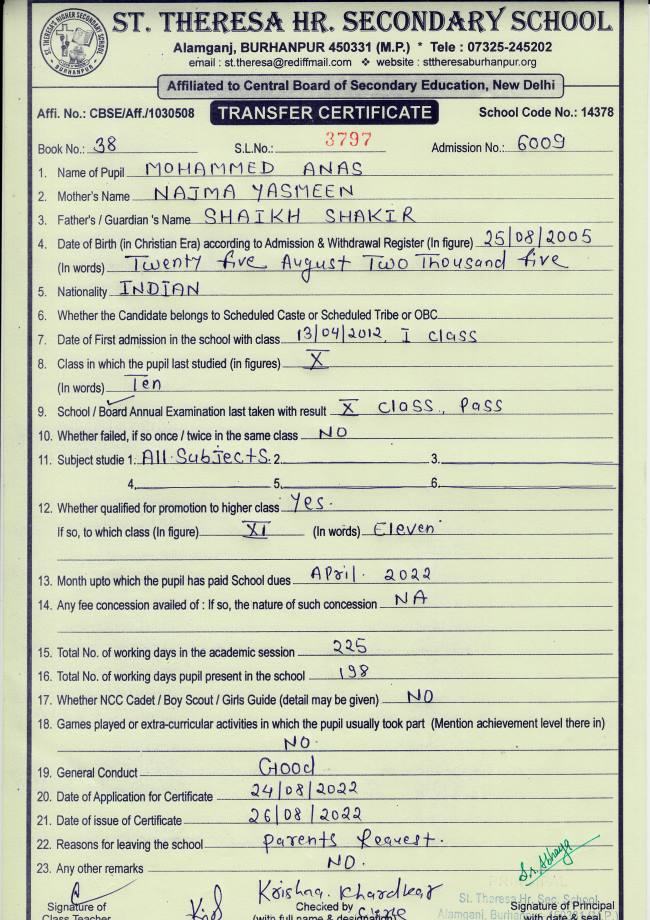 ST. THERESA HR. SECONDARY SCHOOL
Alamganj, BURHANPUR 450331 (M.P.) * Tele : 07325-245202
email : st.theresa@rediffmail.com ❖ website : sttheresaburhanpur.org
Affiliated to Central Board of Secondary Education, New Delhi
Affi. No.: CBSE/Aff./1030508 TRANSFER CERTIFICATE School Code No.: 14378
Book No.: 38 S.L.No.: 3797 Admission No.: 6009
1. Name of Pupil MOHAMMED ANAS
2. Mother's Name NAJMA YASMEEN
3. Father's / Guardian 's Name SHAIKH SHAKIR
4. Date of Birth (in Christian Era) according to Admission & Withdrawal Register (In figure) 25/08/2005
(In words) Twenty five August Two Thousand five
5. Nationality INDIAN
6. Whether the Candidate belongs to Scheduled Caste or Scheduled Tribe or OBC
7. Date of First admission in the school with class 13/04/2012, I class
8. Class in which the pupil last studied (in figures) X
(In words) Ten
9. School / Board Annual Examination last taken with result X class, Pass
10. Whether failed, if so once / twice in the same class NO
11. Subject studie 1. All Subjects 2. 3.
4. 5. 6.
12. Whether qualified for promotion to higher class Yes.
If so, to which class (In figure) XI (In words) Eleven
13. Month upto which the pupil has paid School dues April. 2022
14. Any fee concession availed of : If so, the nature of such concession NA
15. Total No. of working days in the academic session 225
16. Total No. of working days pupil present in the school 198
17. Whether NCC Cadet / Boy Scout / Girls Guide (detail may be given) NO
18. Games played or extra-curricular activities in which the pupil usually took part (Mention achievement level there in)
NO.
19. General Conduct Good
20. Date of Application for Certificate 24/08/2022
21. Date of issue of Certificate 26/08/2022
22. Reasons for leaving the school Parents Request.
23. Any other remarks NO.
Sr. Abhaya
PRINCIPAL
Krishna. Khardkar
St. Theresa Hr. Sec. School
Signature of Checked by Signature of Principal
Class Teacher (with full name & designation) with date & seal
Alamganj, Burhanpur 450331 (M.P.)